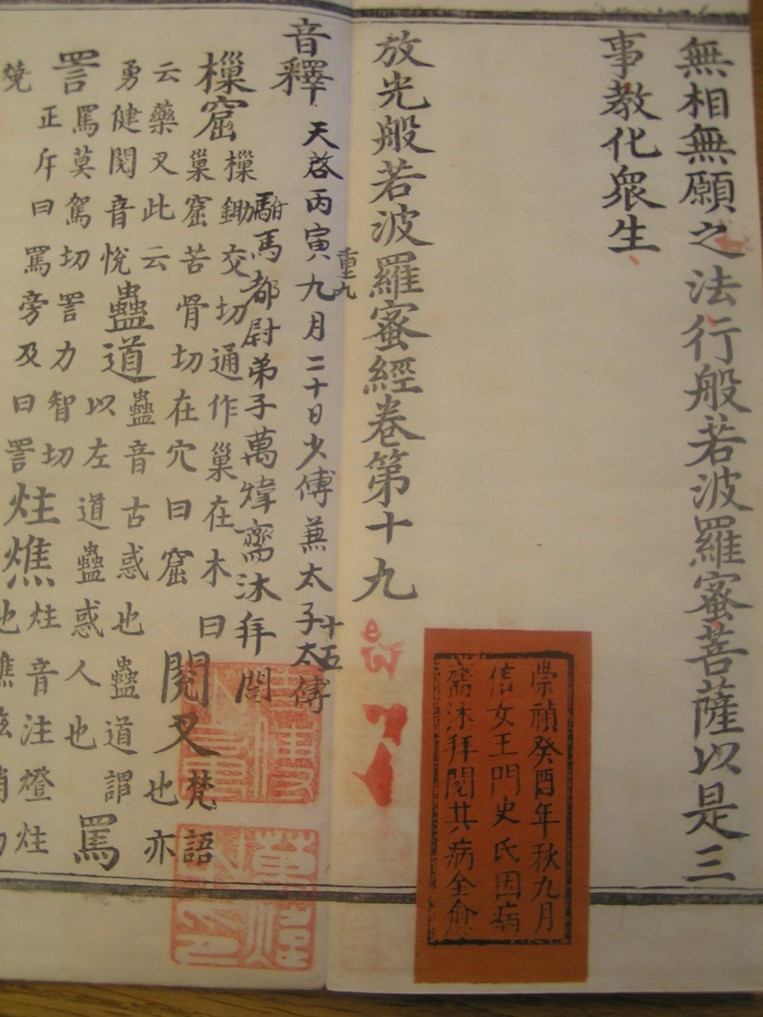 無相無願之法行般若波羅蜜菩薩以是三
事教化衆生
放光般若波羅蜜經卷第十九
崇禎癸酉年秋九月
信女王門史氏因病
齋沐拜閱其病全愈
重九
十五
天啓丙寅九月二十日少傅兼太子太傅
駙馬都尉弟子萬煒齋沐拜閱
音釋
樔窟
樔鋤交切通作巢在木曰
巢窟苦骨切在穴曰窟
閱叉
梵語
也亦
云藥叉此云
勇健閱音悅
蠱道
蠱音古惑也蠱道謂
以左道蠱惑人也
罵
詈
罵莫駕切詈力智切
正斥曰罵旁及曰詈
炷燋
炷音注燈炷
也燋
燒